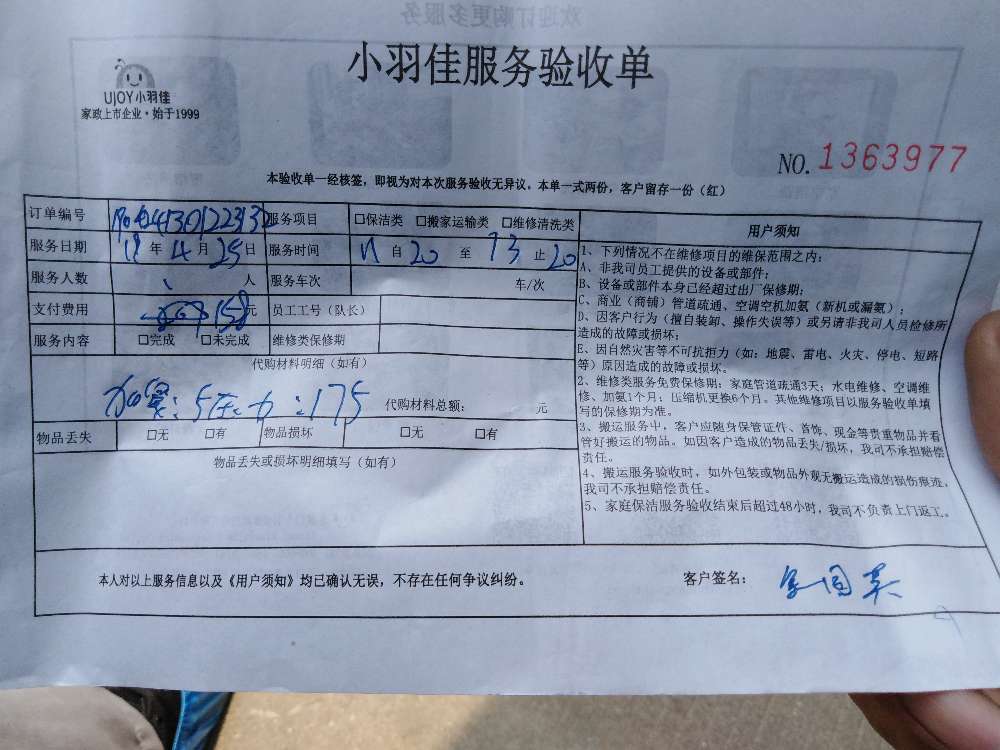 小羽佳服务验收单
UJOY小羽佳
家政上市企业·始于1999
NO. 1363977
本验收单一经核签，即视为对本次服务验收无异议。本单一式两份，客户留存一份（红）
订单编号 服务项目 □保洁类 □搬家运输类 □维修清洗类
服务日期 年 4 月 25 日 服务时间 自 20 至 13 止 20
服务人数 人 服务车次 车/次
支付费用 158 元 员工工号（队长）
服务内容 □完成 □未完成 维修类保修期
代购材料明细（如有）
175 代购材料总额： 元
物品丢失 □无 □有 物品损坏 □无 □有
物品丢失或损坏明细填写（如有）
用户须知
1、下列情况不在维修项目的维保范围之内：
A、非我司员工提供的设备或部件；
B、设备或部件本身已经超过出厂保修期；
C、商业（商铺）管道疏通、空调空机加氨（新机或漏氨）；
D、因客户行为（擅自装卸、操作失误等）或另请非我司人员检修所
造成的故障或损坏；
E、因自然灾害等不可抗拒力（如：地震、雷电、火灾、停电、短路
等）原因造成的故障或损坏。
2、维修类服务免费保修期：家庭管道疏通3天；水电维修、空调维
修、加氨1个月；压缩机更换6个月。其他维修项目以服务验收单填
写的保修期为准。
3、搬运服务中，客户应随身保管证件、首饰、现金等贵重物品并看
管好搬运的物品。如因客户造成的物品丢失/损坏，我司不承担赔偿
责任。
4、搬运服务验收时，如外包装或物品外观无搬运造成的损伤痕迹，
我司不承担赔偿责任。
5、家庭保洁服务验收结束后超过48小时，我司不负责上门返工。
本人对以上服务信息以及《用户须知》均已确认无误，不存在任何争议纠纷。
客户签名：